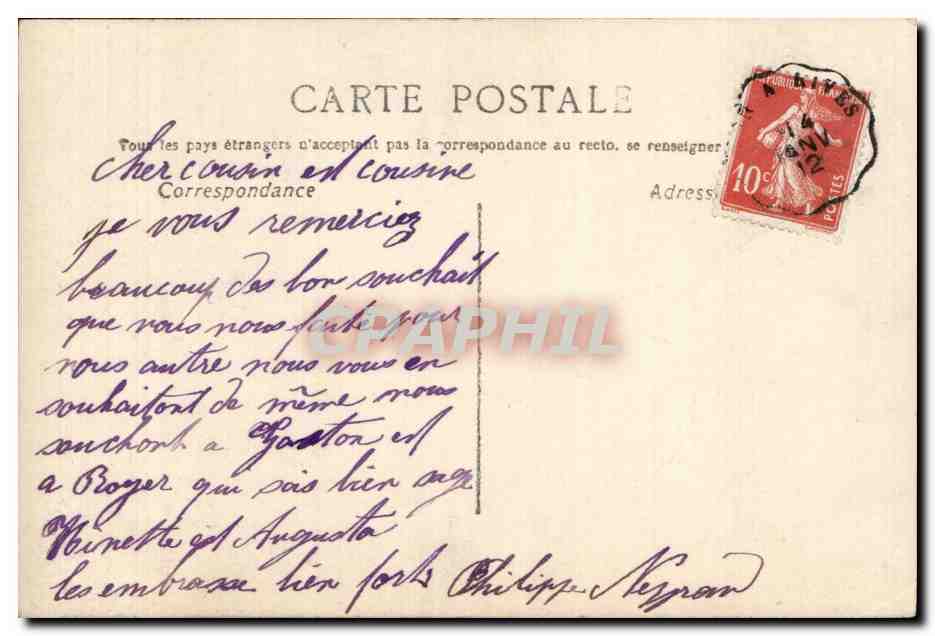 CARTE POSTALE
Tous les pays étrangers n'acceptent pas la correspondance au recto, se renseigner
cher cousin est cousine
Correspondance
Adresse
je vous remerciez
beaucoup des bon souchait
que vous nous faite pour
nous autre nous vous en
souhaitont de même nous
souchont a Gaston est
a Royer qui sois bien sage
Ninette est Augusta
les embrasse bien fort
Philippe
REPUBLIQUE FRANÇAISE
10c
POSTES
RIVES
14
12
CPAPHIL